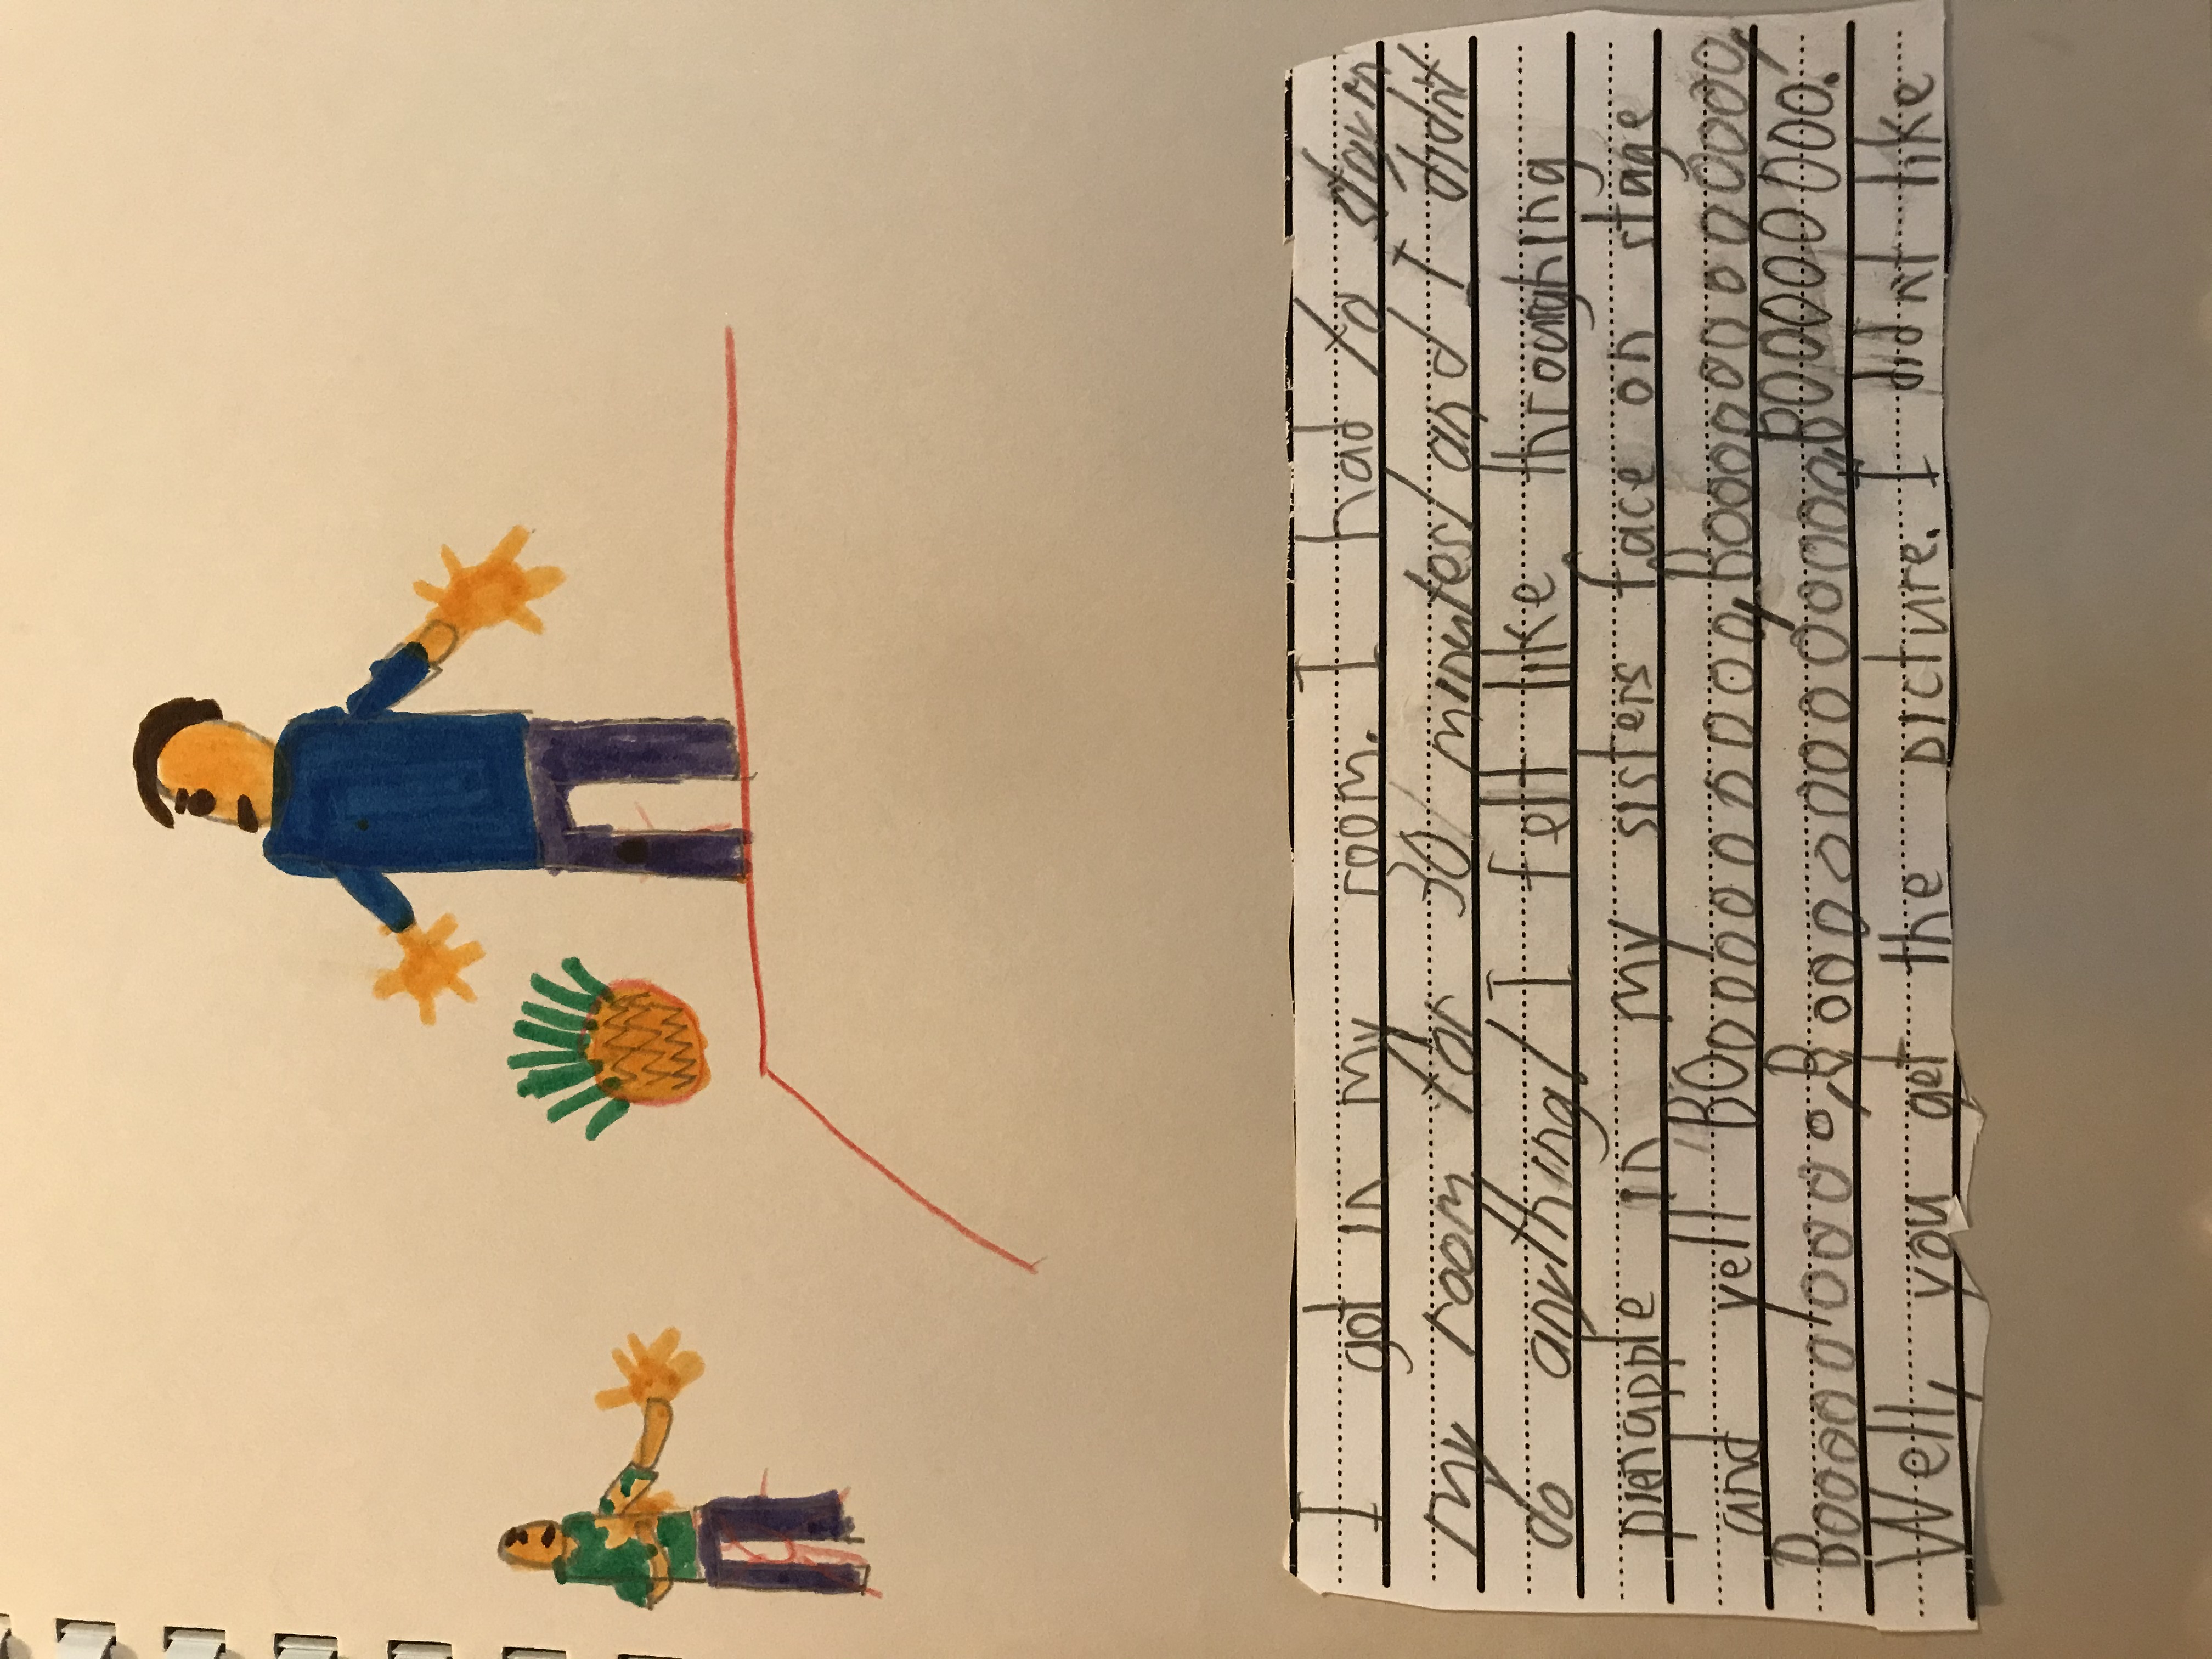 I got in my room. I had to stay in
my room for 30 minutes! and I didn't
do anything! I felt like throughing
pienapple in my sisters face on stage
and yell "BOooooooooo,Booooooooooooo,
Boooooooooo,Booooooooooooo,BOOOOOOOOO!
Well, you get the picture. I didn't like